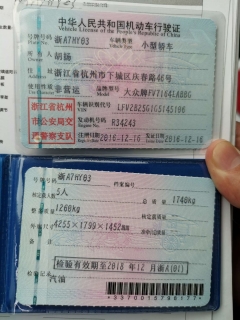 中华人民共和国机动车行驶证
Vehicle License of the People's Republic of China
号牌号码 浙A7MY03 车辆类型 小型轿车
所有人 胡扬
住址 浙江省杭州市下城区庆春路46号
使用性质 非营运 品牌型号 大众牌FV7164LABBG
浙江省杭州
市公安局交
通警察支队
车辆识别代号 LFV2B25G1G5145106
发动机号码 R34243
注册日期 2016-12-16 发证日期 2016-12-16
号牌号码 浙A7MY03 档案编号
核定载人数 5人 总质量 1740kg
整备质量 1260kg 核定载质量
外廓尺寸 4255×1799×1452mm
备注
检验有效期至2018年12月浙A(01)
检验记录
汽油